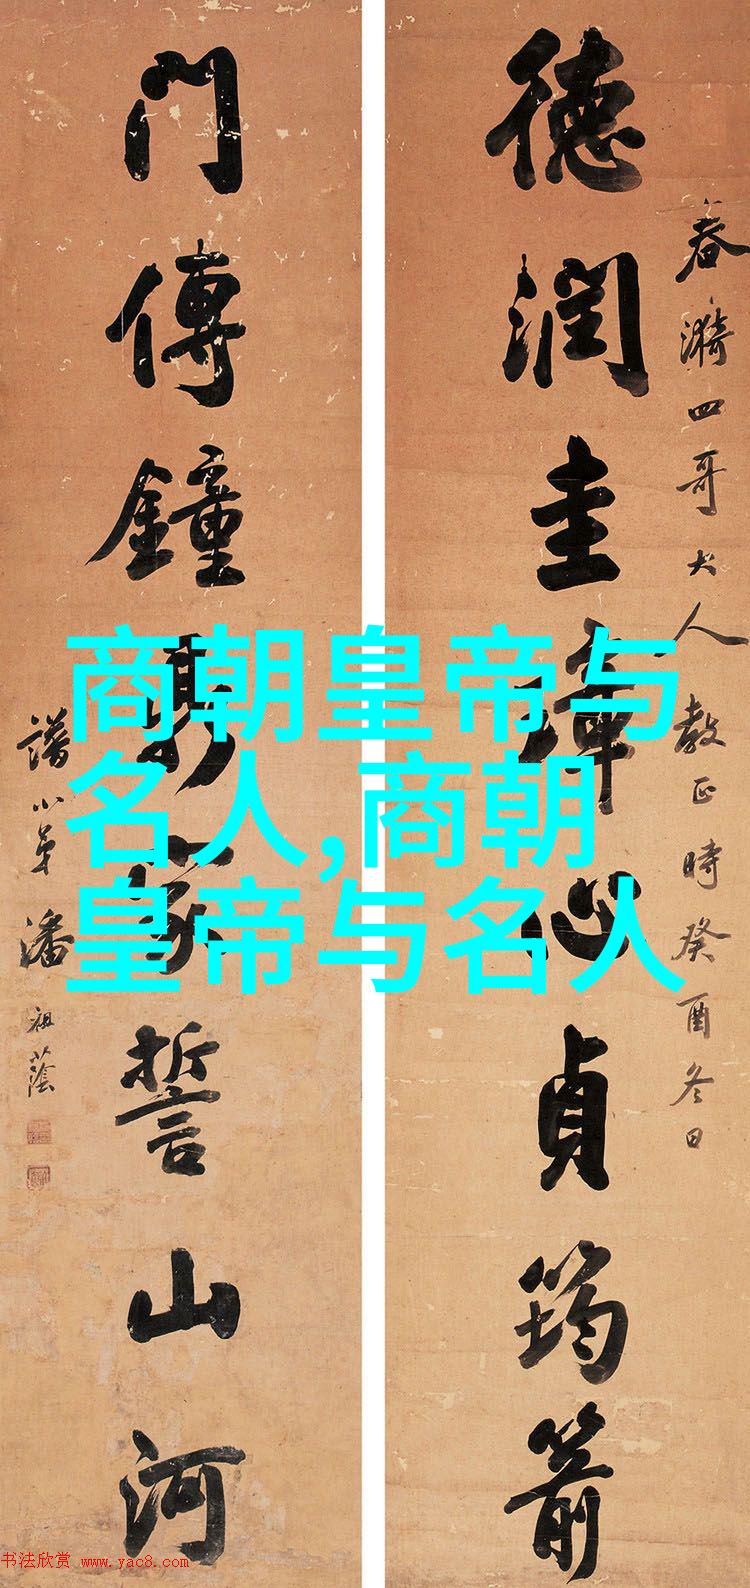 春漪四哥大人教正時癸酉冬日
德潤圭璋心貞筠箭
門傳鐘家誓山河
譜小弟潘祖蔭
商朝皇帝与
名人,商朝
皇帝与名人
书法欣赏 www.yac8.com